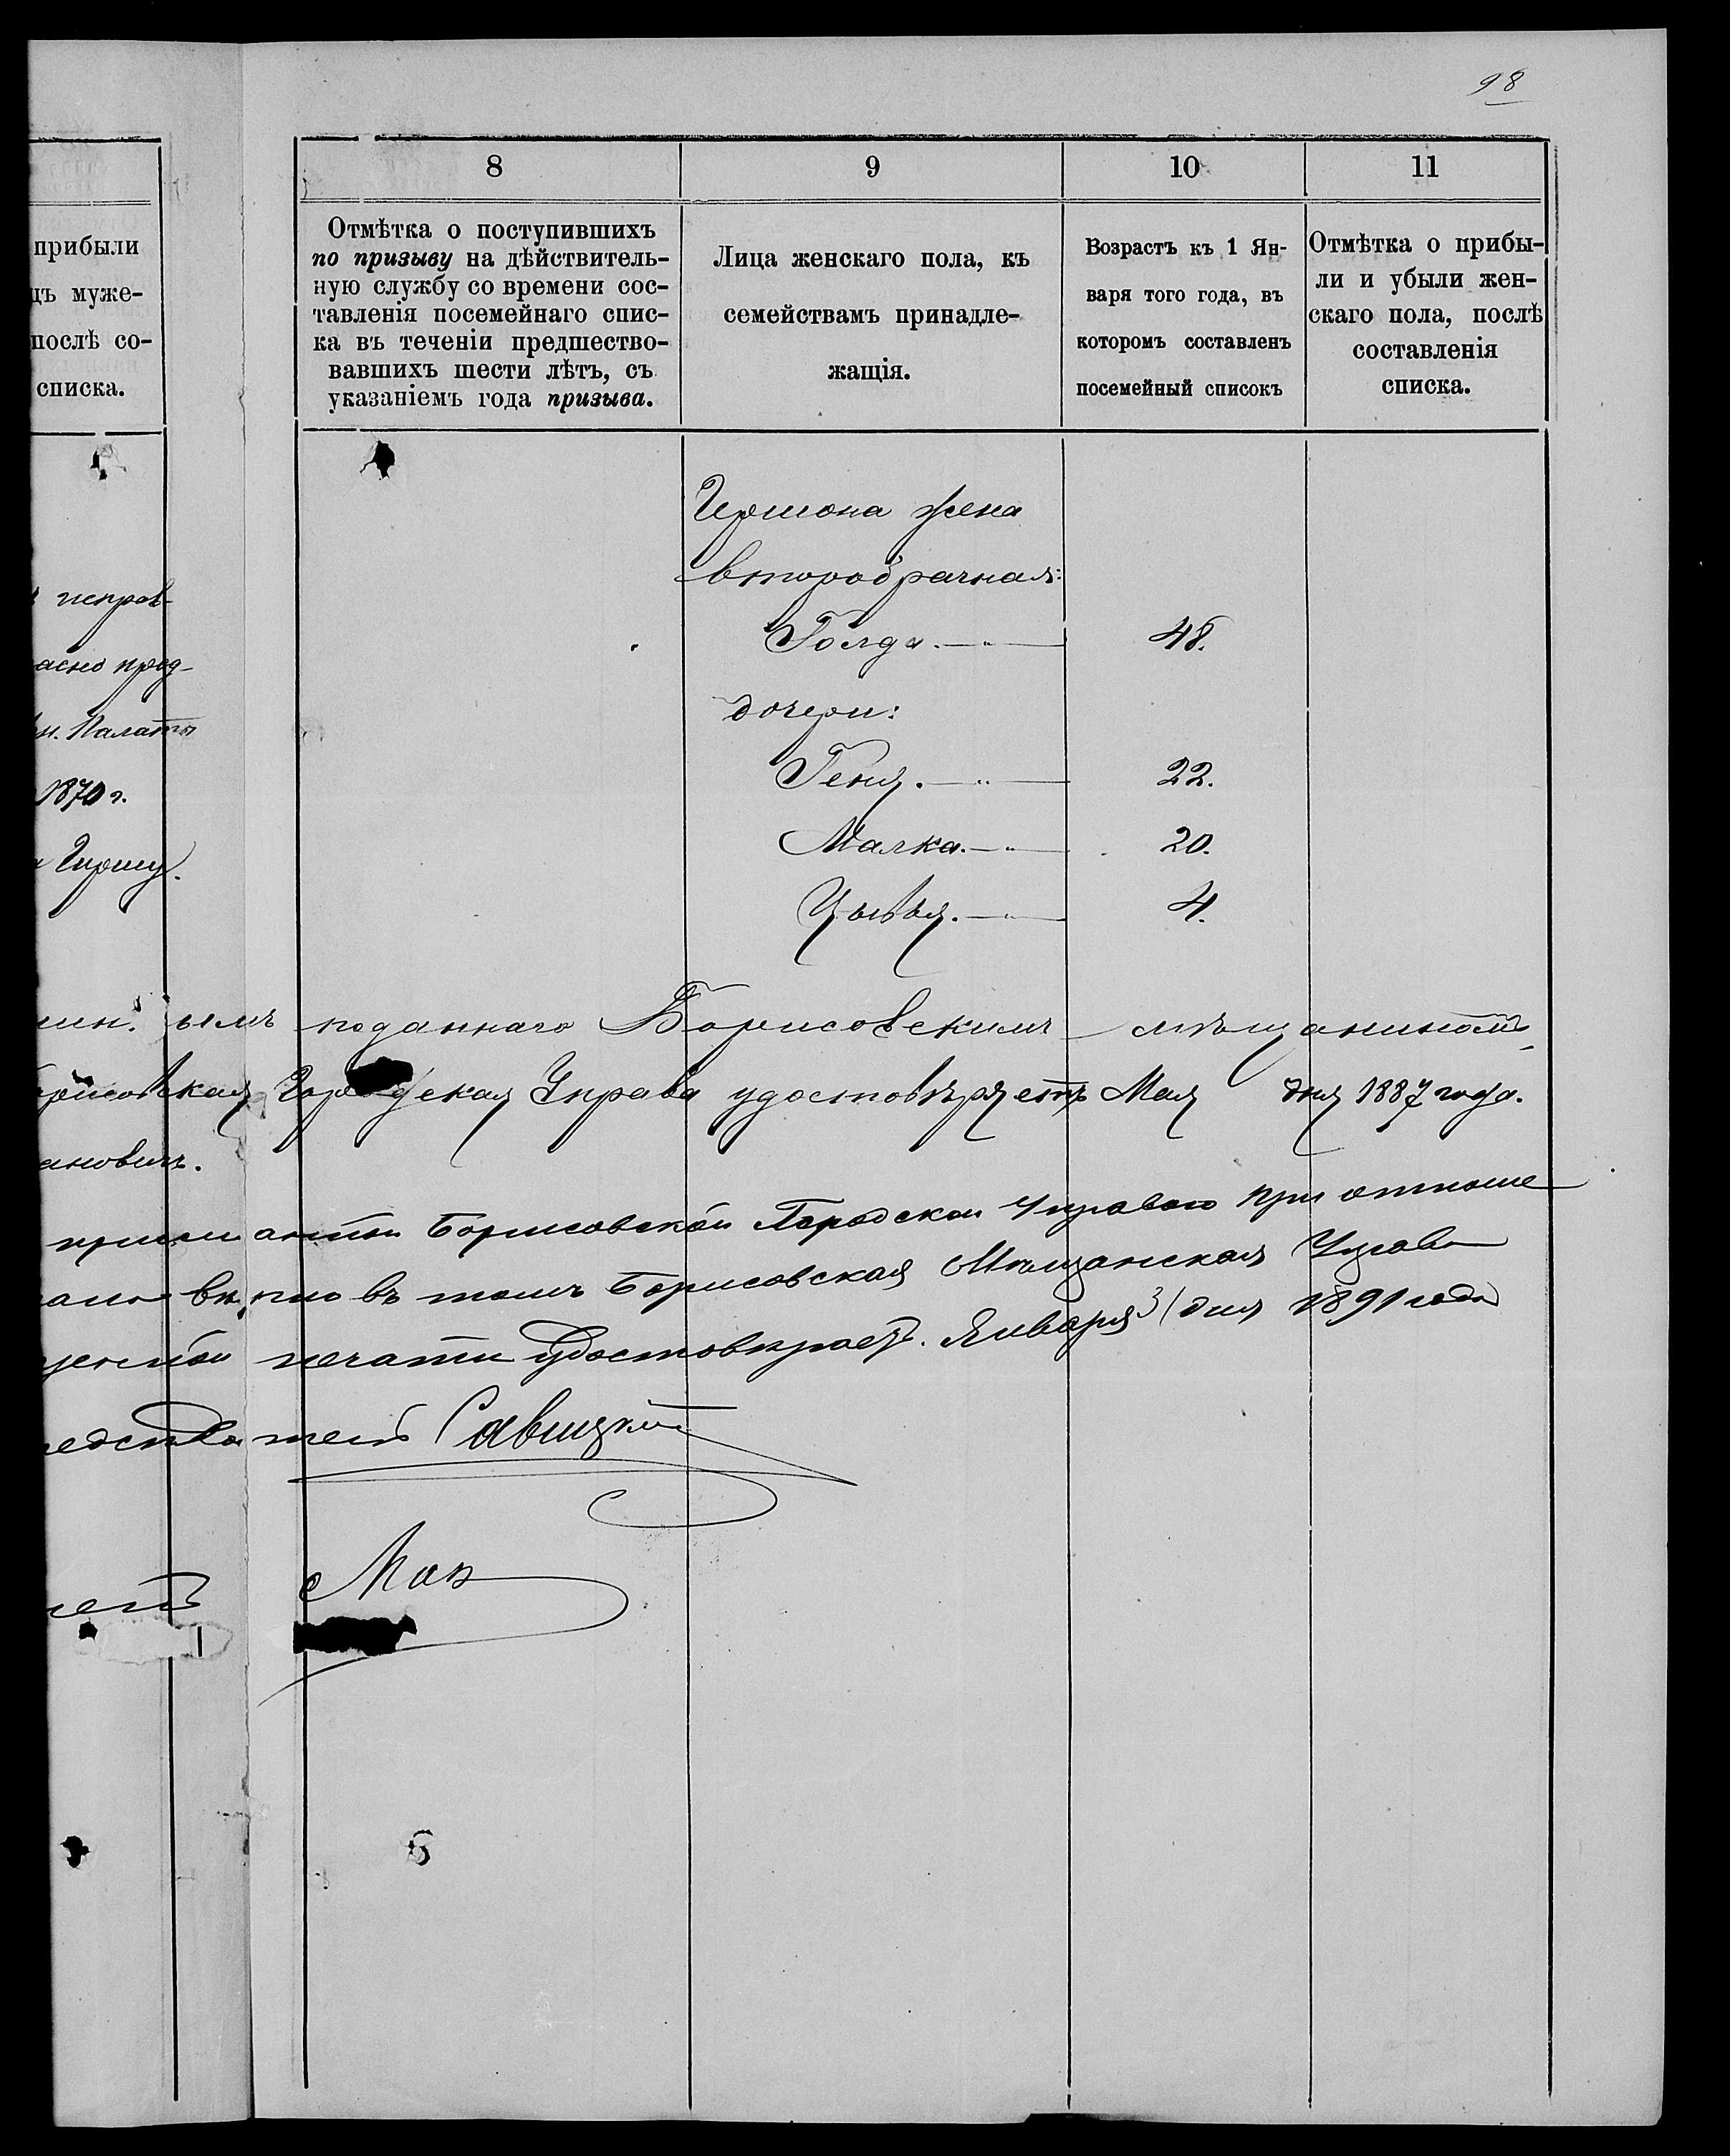 98
прибыли
цъ муже-
послѣ со-
списка.
исправ-
асно пред-
н. Палаты
1870 г.
Гиршу.
8
9
10
11
Отмѣтка о поступившихъ
по призыву на дѣйствитель-
ную службу со времени сос-
тавленія посемейнаго спис-
ка въ теченіи предшество-
вавшихъ шести лѣтъ, съ
указаніемъ года призыва.
Лица женскаго пола, къ
семействамъ принадле-
жащія.
Возрастъ къ 1 Ян-
варя того года, въ
которомъ составленъ
посемейный списокъ
Отмѣтка о прибы-
ли и убыли жен-
скаго пола, послѣ
составленія
списка.
Гиршона жена
второбрачная:
Голда. 48.
дочери:
Геня. 22.
Малка. 20.
Цывья. 4.
поданнаго Борисовскимъ мѣщаниномъ,
орисовская Городская Управа удостовѣряетъ Мая дня 1887 года.
ановичъ.
Борисовской Городской Управою при отноше
въ томъ Борисовская Мѣщанская Управа
печати удостовѣряетъ. Января 31 дня 1891 года
едседатель Савицкій